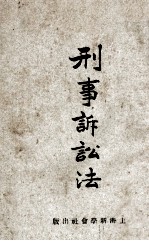 刑事訴訟法
上海新學會社出版